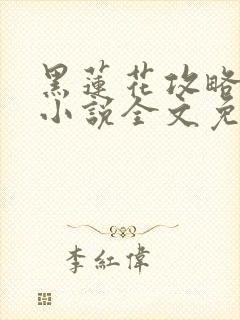 黑蓮花攻略
小說全文免
李紅偉